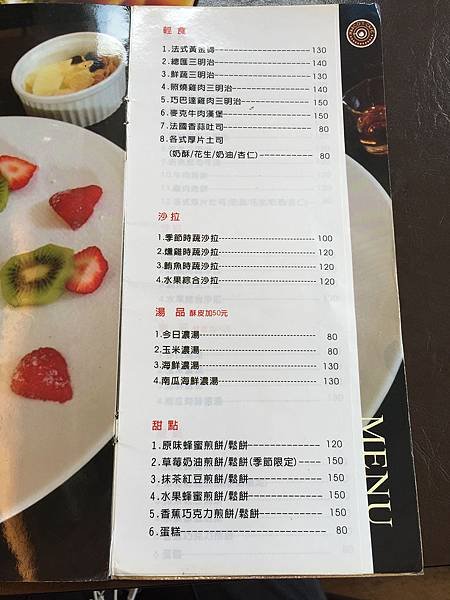 輕食
1.法式黃金磚 130
2.總匯三明治 140
3.鮮蔬三明治 130
4.照燒雞肉三明治 140
5.巧巴達雞肉三明治 150
6.麥克牛肉漢堡 150
7.法國香蒜吐司 80
8.各式厚片土司
(奶酥/花生/奶油/杏仁) 80
沙拉
1.季節時蔬沙拉 100
2.燻雞時蔬沙拉 120
3.鮪魚時蔬沙拉 120
4.水果綜合沙拉 120
湯 品 酥皮加50元
1.今日濃湯 80
2.玉米濃湯 80
3.海鮮濃湯 130
4.南瓜海鮮濃湯 130
甜點
1.原味蜂蜜煎餅/鬆餅 120
2.草莓奶油煎餅/鬆餅(季節限定) 150
3.抹茶紅豆煎餅/鬆餅 150
4.水果蜂蜜煎餅/鬆餅 150
5.香蕉巧克力煎餅/鬆餅 150
6.蛋糕 80
MENU